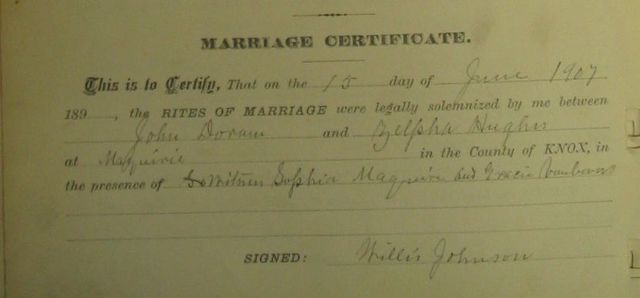 MARRIAGE CERTIFICATE.
This is to Certify, That on the 15 day of June 1907
189 , the RITES OF MARRIAGE were legally solemnized by me between
John Doram and Zelpha Hughs
at Maquirie in the County of KNOX, in
the presence of Witness Sophia Maquire and Gracie
SIGNED: Willis Johnson